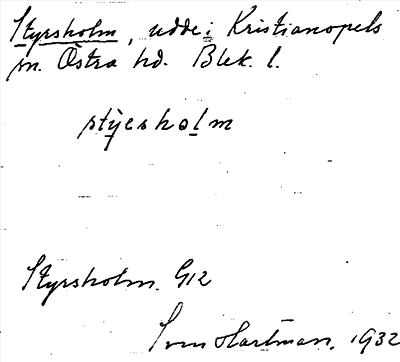 Styrsholm, udde i Kristianopels
sn. Östra hd. Blek. l.
styesholm
Styrsholm. G12
Sven Hartman, 1932